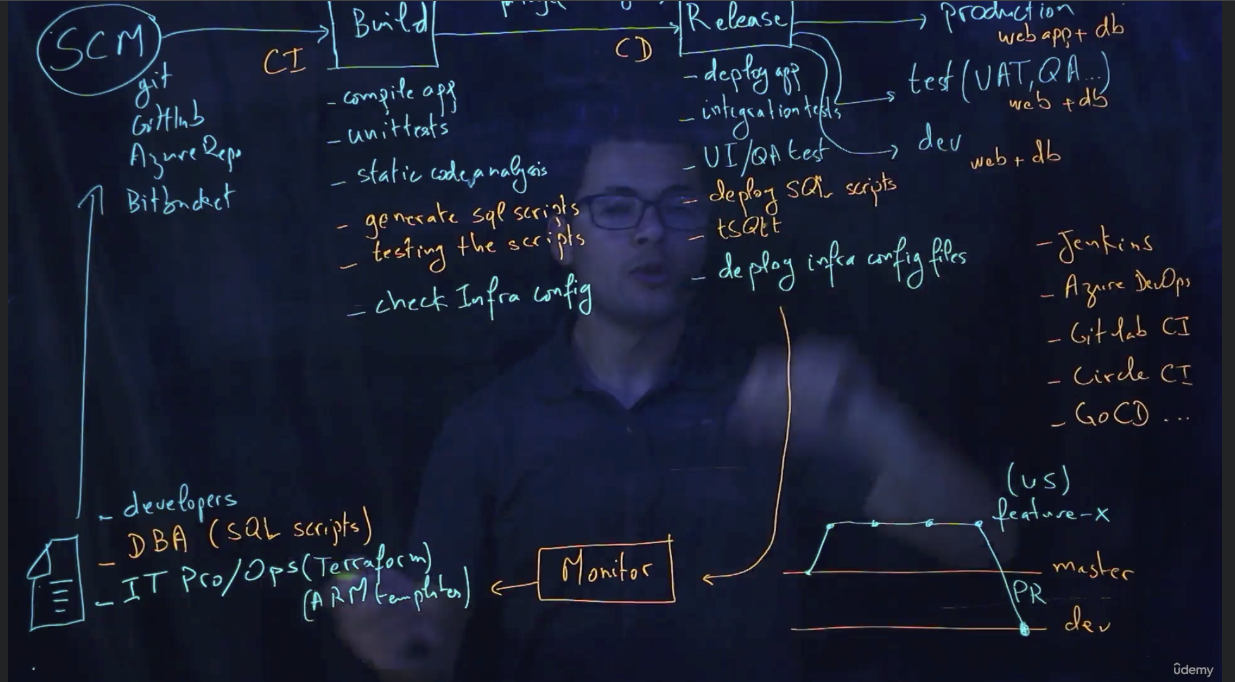 SCM
CI
Build
CD
Release
production
web app + db
git
GitHub
Azure Repo
Bitbucket
- compile app
- unit tests
- static code analysis
- generate sql scripts
- testing the scripts
- check Infra config
- deploy app
- integration tests
- UI/QA test
- deploy SQL scripts
- tSQLt
- deploy infra config files
test (UAT, QA...)
web + db
dev
web + db
- Jenkins
- Azure DevOps
- Gitlab CI
- Circle CI
- GoCD ...
- developers
- DBA (SQL scripts)
- IT Pro/Ops (Terraform)
(ARM templates)
Monitor
(US)
feature-x
master
PR
dev
ûdemy